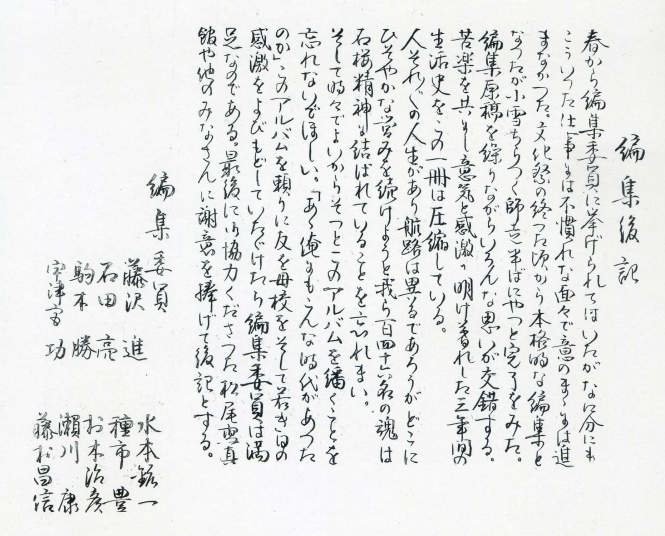 編集後記
春から編集委員に挙げられてはいたがなに分にも
こういった仕事には不慣れな面々で意のまゝには進
まなかった。文化祭の終った頃から本格的な編集と
なったが小雪ちらつく師走半ばにやっと完了をみた。
編集原稿を繰りながらいろんな思いが交錯する。
苦楽を共にし意気と感激に明け暮れした三年間の
生活史をこの一冊は圧縮している。
人それ〴〵の人生があり航路は異るであろうがどこに
ひそやかな営みを続けようと我ら一百四十六名の魂は
石桜精神に結ばれていることを忘れまい。
そして時々でよいからそっとこのアルバムを繙くことを
忘れないでほしい。「あゝ俺にもこんな時代があった
のか」このアルバムを頼りに友を母校をそして若き日の
感激をよびもどしていたゞけたら編集委員は満
足なのである。最後に御協力くださった松尾写真
館や他のみなさんに謝意を捧げて後記とする。
編集委員
藤沢 進
石田 亮
駒木 勝
功
水本 鉱一
種市 豊
木治彦
瀬川 康
藤村昌信